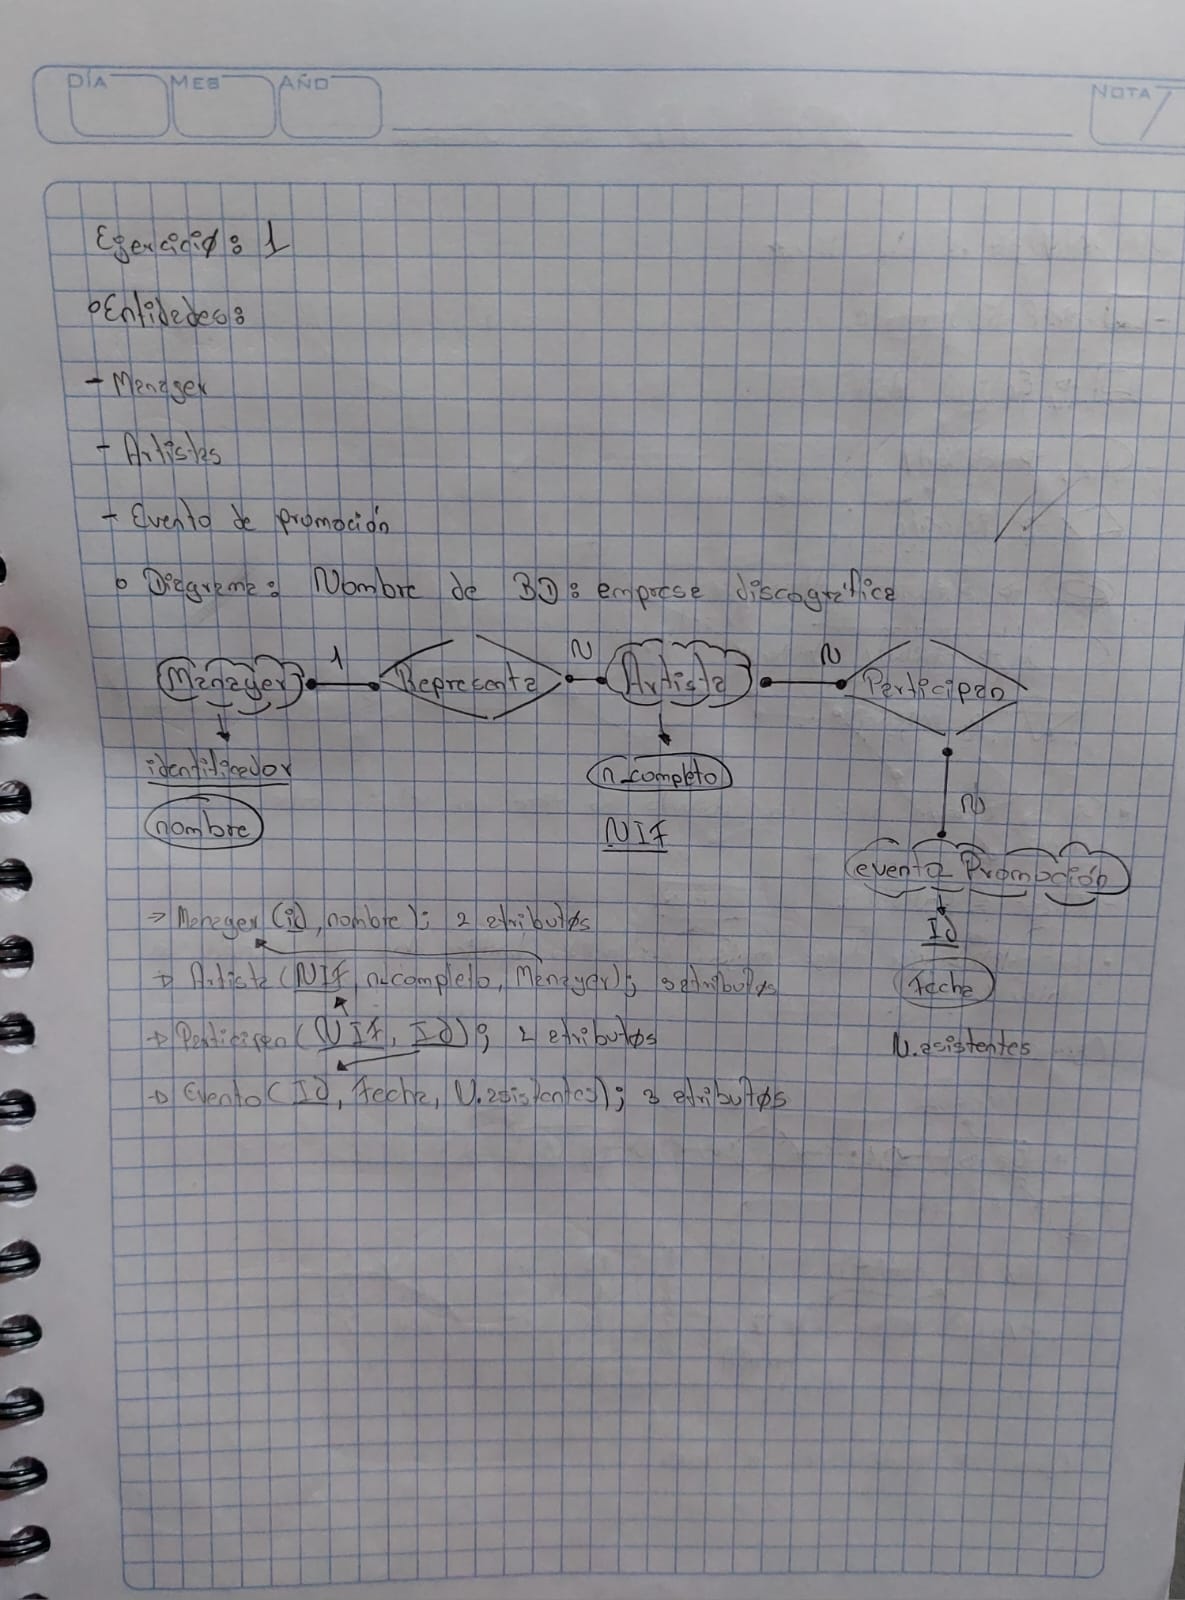 DÍA MES AÑO NOTA
Ejercicio: 1
Entidades:
- Manager
- Artistas
- Evento de promoción
Diagrama: Nombre de BD: empresa discográfica
Manager 1 Representa N Artista N Participan
identificador
n_completo
nombre
NIF
N
evento Promoción
Id
fecha
N.asistentes
→ Manager (id, nombre); 2 atributos
→ Artista (NIF, n_completo, Manager); 3 atributos
→ Participan (NIF, Id); 2 atributos
→ Evento (Id, fecha, N.asistentes); 3 atributos